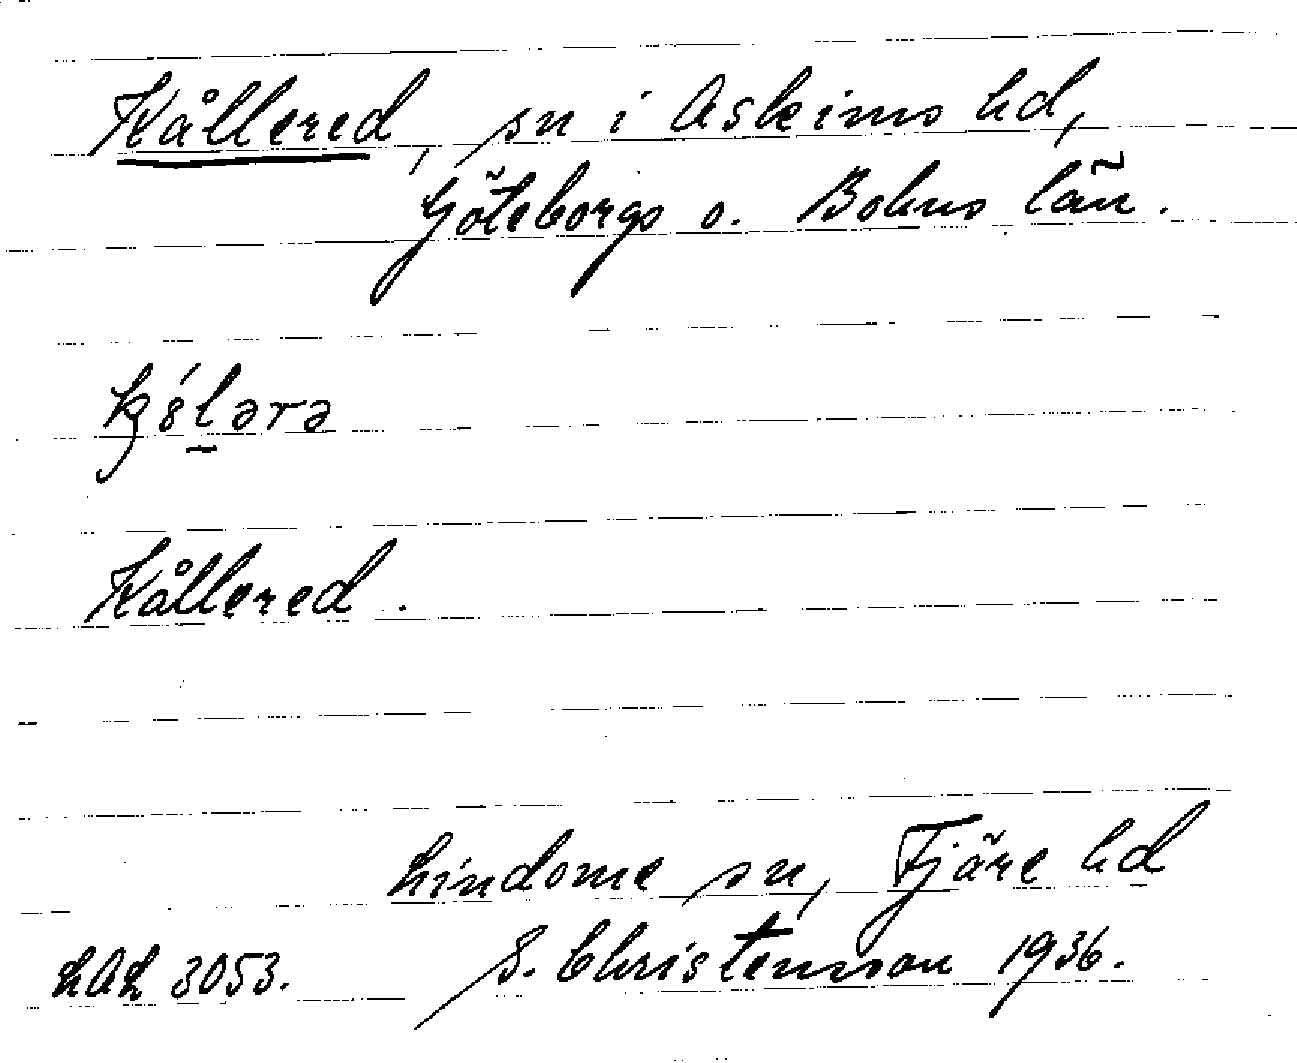 Kållered, sn i Askims hd,
Göteborgs o. Bohus län.
Kållered.
Lindome sn, Fjäre hd
LAL 3053. S. Christensson 1936.